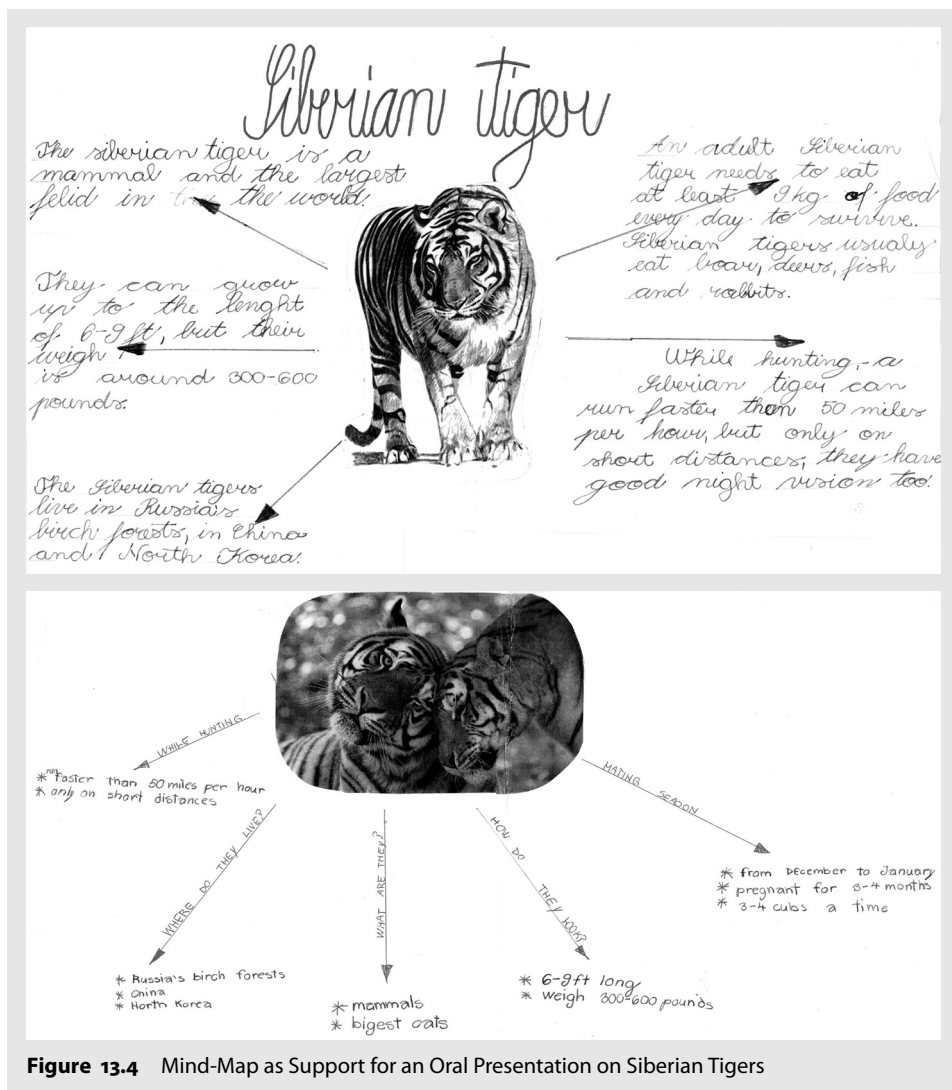 Siberian tiger
The siberian tiger is a
mammal and the largest
felid in the world.
They can grow
up to the lenght
of 6-9 ft, but their
weigh
is around 300-600
pounds.
The Siberian tigers
live in Russia's
birch forests, in China
and North Korea.
An adult Siberian
tiger needs to eat
at least 9kg of food
every day to survive.
Siberian tigers usualy
eat boar, deers, fish
and rabbits.
While hunting, a
Siberian tiger can
run faster than 50 miles
per hour, but only on
short distances, they have
good night vision too.
WHILE HUNTING
* run faster than 50 miles per hour
* only on short distances
WHERE DO THEY LIVE?
* Russia's birch forests
* China
* North Korea
WHAT ARE THEY?
* mammals
* bigest cats
HOW DO THEY LOOK?
* 6-9ft long
* weigh 300-600 pounds
MATING SEASON
* from December to January
* pregnant for 3-4 months
* 3-4 cubs a time
Figure 13.4 Mind-Map as Support for an Oral Presentation on Siberian Tigers